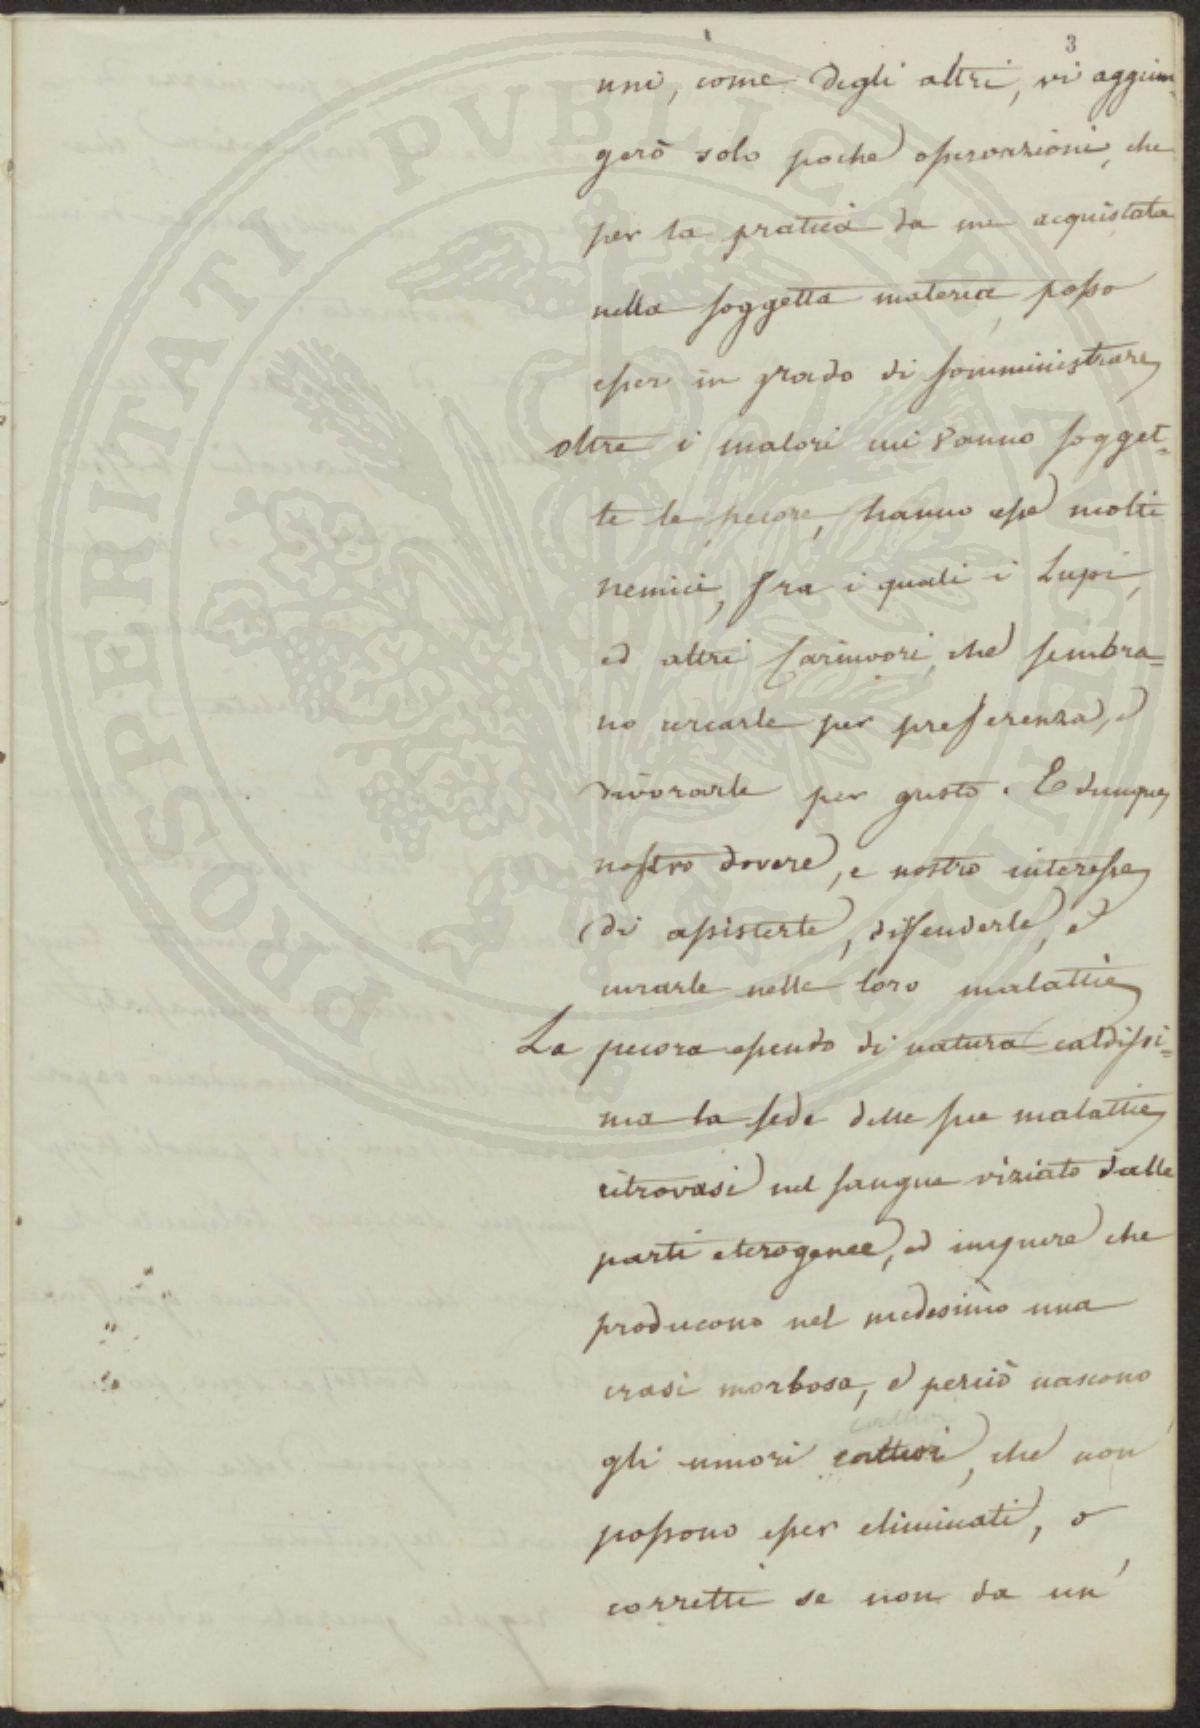 3
uni, come degli altri, vi aggiun-
gerò solo poche osservazioni, che
per la pratica da me acquistata
nella soggetta materia, posso
esser in grado di somministrare
oltre i malori cui vanno sogget-
te le pecore, hanno esse molti
nemici, fra i quali i Lupi,
ed altri Carnivori, che sembra-
no cercarle per preferenza, e
divorarle per gusto. E dunque
nostro dovere, e nostro interesse
di assisterle, difenderle, e
curarle nelle loro malattie
La pecora essendo di natura caldissi-
ma la sede delle sue malattie
ritrovasi nel sangue viziato dalle
parti eterogenee, ed impure che
producono nel medesimo una
crasi morbosa, e perciò nascono
gli umori cattivi, che non
possono esser eliminati, o
corretti se non da un'
PROSPERITATI PUBLICAE AUGENDAE